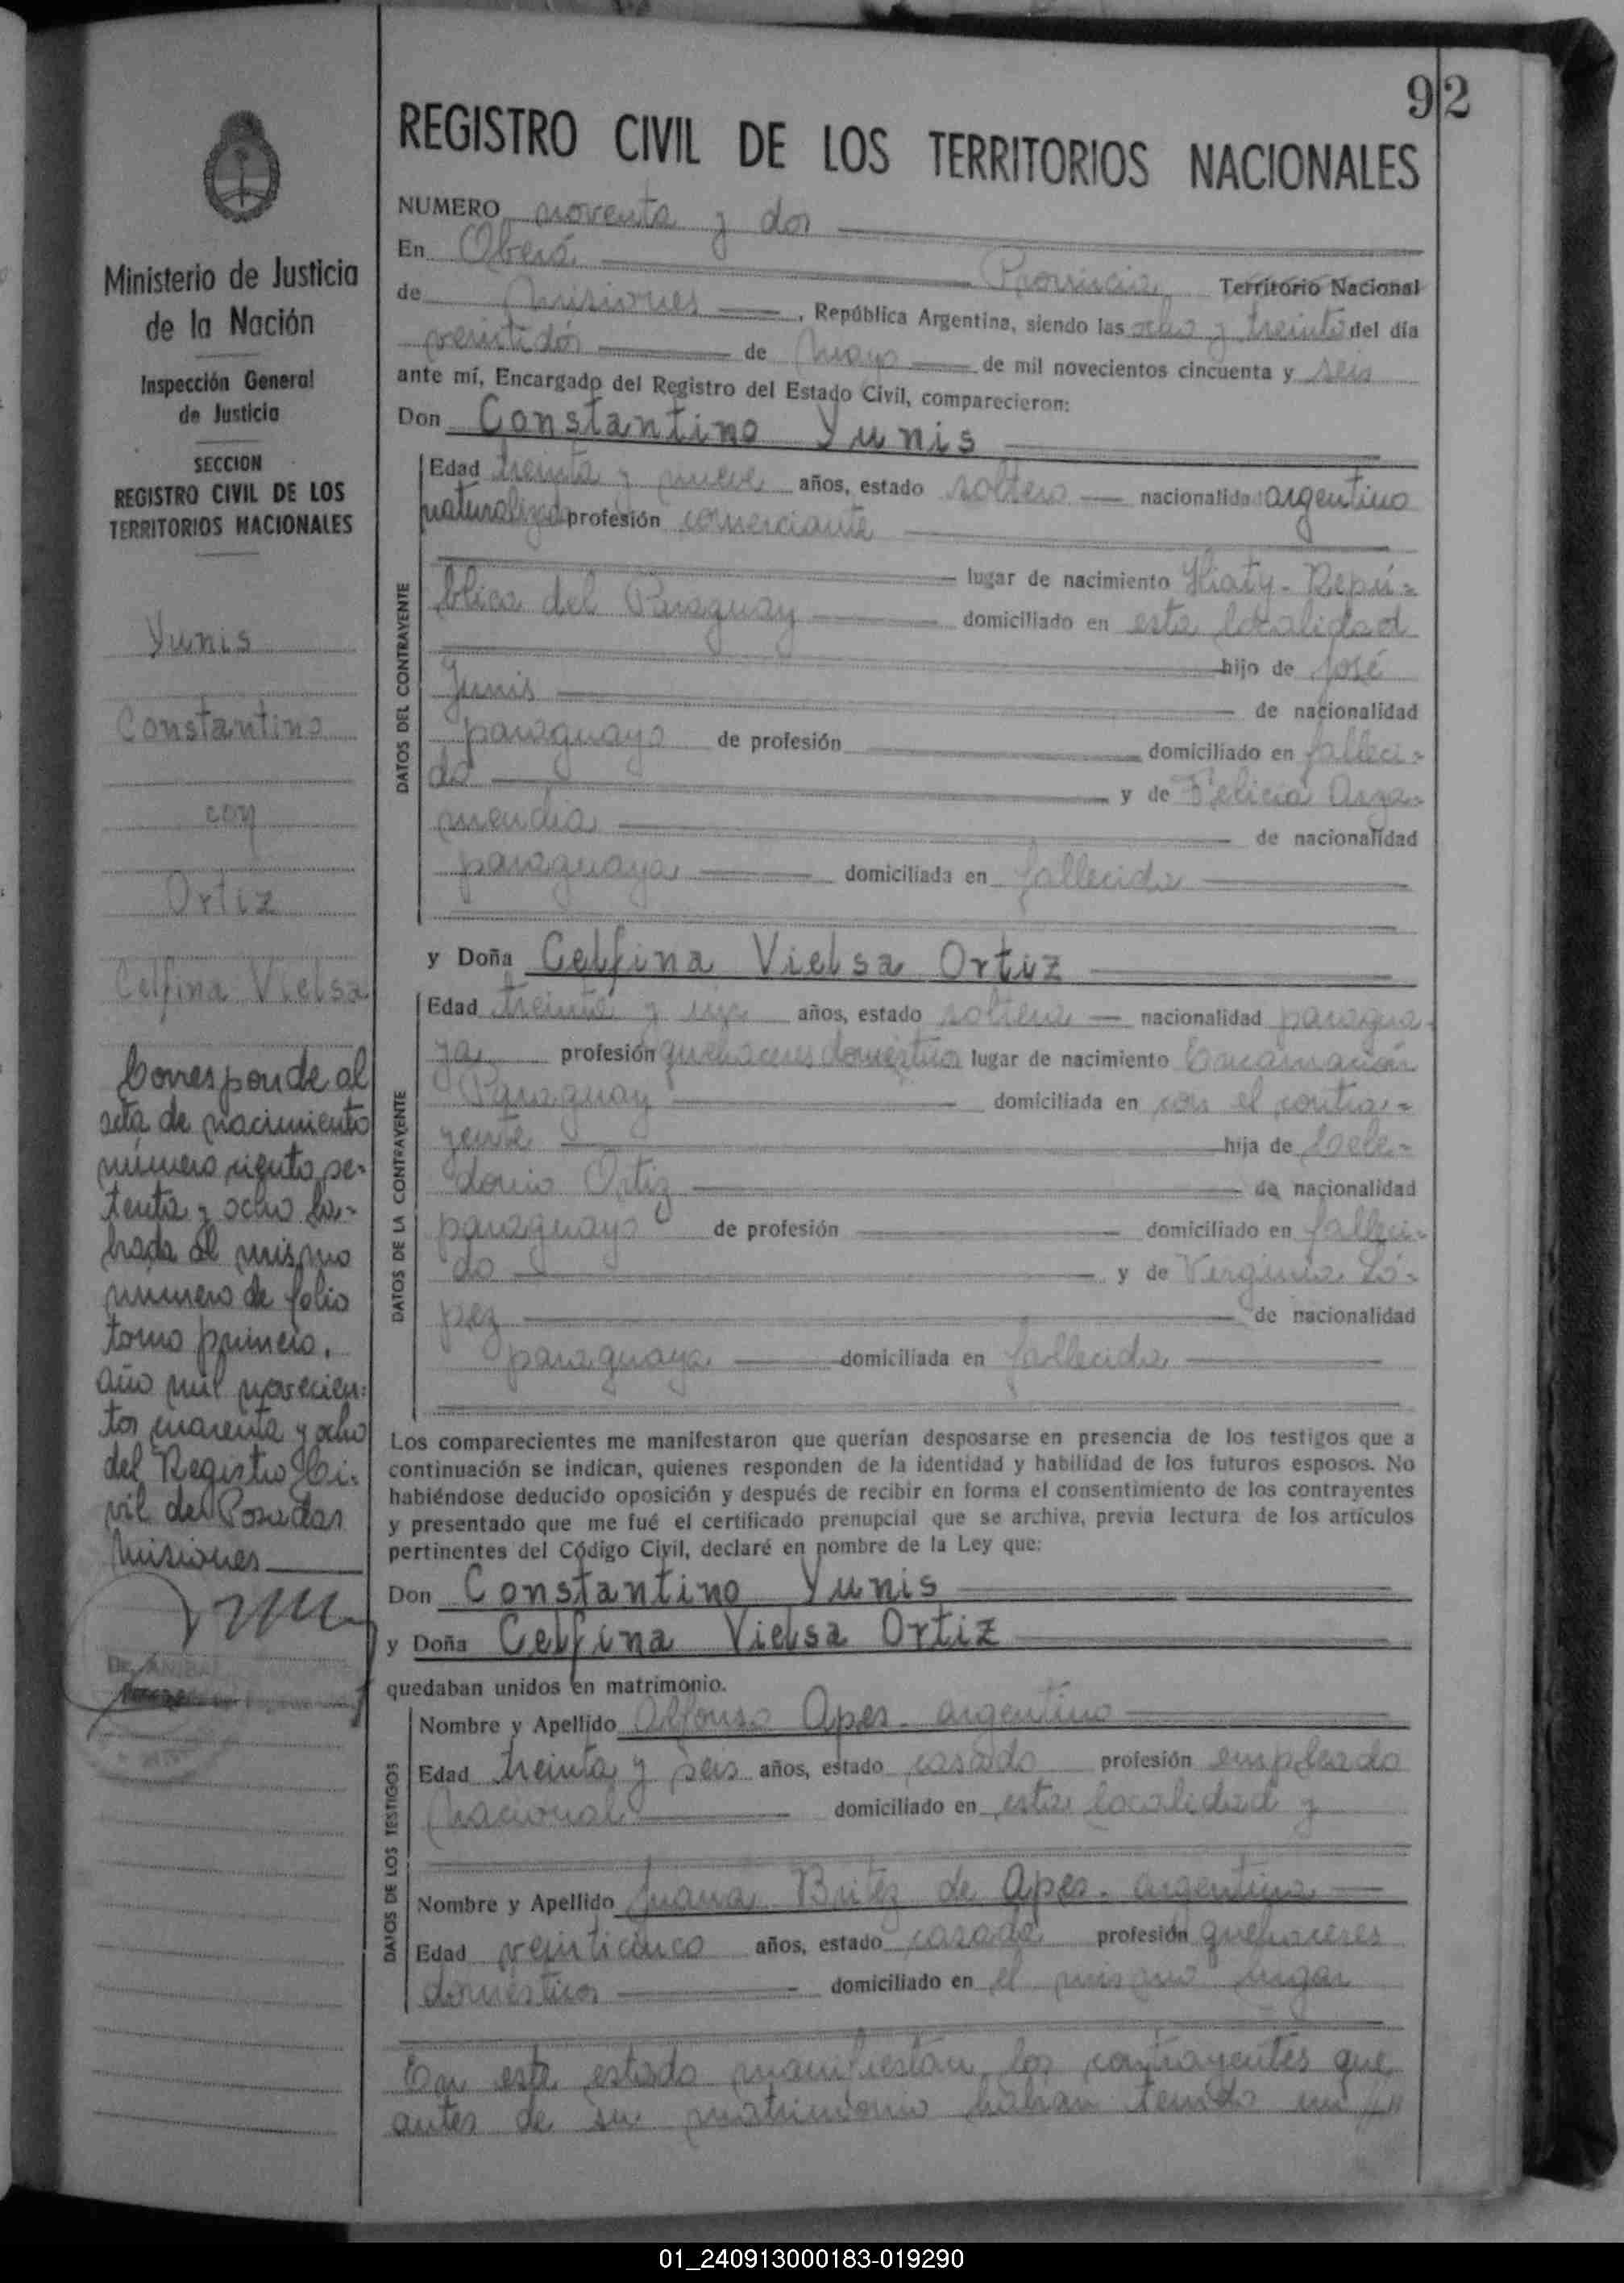 92
REGISTRO CIVIL DE LOS TERRITORIOS NACIONALES
NUMERO noventa y dos
En Oberá Provincia Territorio Nacional
de Misiones, República Argentina, siendo las ocho y treinta del día
veintidós de Mayo de mil novecientos cincuenta y seis
ante mí, Encargado del Registro del Estado Civil, comparecieron:
Don Constantino Yunis
Edad treinta y nueve años, estado soltero nacionalidad argentino
naturalizado profesión comerciante
lugar de nacimiento Yhaty - Repú-
blica del Paraguay domiciliado en esta localidad
hijo de José
Yunis de nacionalidad
paraguayo de profesión domiciliado en falleci-
do y de Felicia Arza-
mendia de nacionalidad
paraguaya domiciliada en fallecida
DATOS DEL CONTRAYENTE
y Doña Celfina Vielsa Ortiz
Edad treinta y un años, estado soltera nacionalidad paragua-
ya profesión quehaceres domésticos lugar de nacimiento Encarnación
Paraguay domiciliada en con el contra-
yente hija de Cele-
donio Ortiz de nacionalidad
paraguayo de profesión domiciliado en falleci-
do y de Virginia Ló-
pez de nacionalidad
paraguaya domiciliada en fallecida
DATOS DE LA CONTRAYENTE
Los comparecientes me manifestaron que querían desposarse en presencia de los testigos que a
continuación se indican, quienes responden de la identidad y habilidad de los futuros esposos. No
habiéndose deducido oposición y después de recibir en forma el consentimiento de los contrayentes
y presentado que me fué el certificado prenupcial que se archiva, previa lectura de los artículos
pertinentes del Código Civil, declaré en nombre de la Ley que:
Don Constantino Yunis
y Doña Celfina Vielsa Ortiz
quedaban unidos en matrimonio.
Nombre y Apellido Alfonso Apes - argentino
Edad treinta y seis años, estado casado profesión empleado
Nacional domiciliado en esta localidad y
Nombre y Apellido Juana Britez de Apes - argentina
Edad veinticinco años, estado casada profesión quehaceres
domésticos domiciliado en el mismo lugar
DATOS DE LOS TESTIGOS
En este estado manifiestan los contrayentes que
antes de su matrimonio habian tenido un
Ministerio de Justicia
de la Nación
Inspección General
de Justicia
SECCION
REGISTRO CIVIL DE LOS
TERRITORIOS NACIONALES
Yunis
Constantino
con
Ortiz
Celfina Vielsa
Corresponde al
acta de nacimiento
número ciento se-
tenta y ocho la-
brada al mismo
número de folio
tomo primero,
año mil novecien-
tos cuarenta y ocho
del Registro Ci-
vil de Posadas
Misiones
01_240913000183-019290